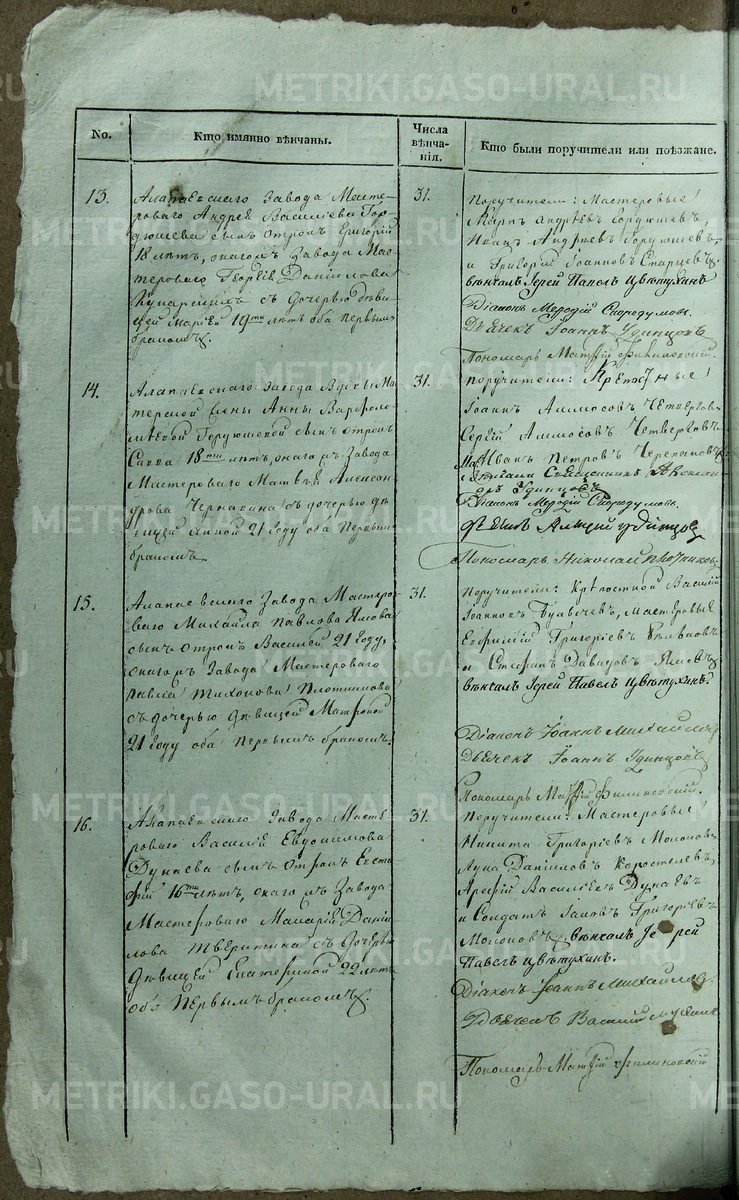 No.
Кто имянно вѣнчаны.
Числа вѣнчанія.
Кто были поручители или поѣзжане.
13.
Алапаевскаго Завода Мастероваго
Андрея Василіева
сынъ отрокъ Григорій
18 лѣтъ, онагожъ Завода Мастероваго
Георгія Данилова
съ дочерью дѣвицей
Маріей 19ти лѣтъ оба первымъ
бракомъ.
31.
Поручители: Мастеровые
Карпъ Андрѣевъ
Иванъ Андрѣевъ
и Григорій Іоанновъ Старцевъ
вѣнчалъ Іерей Павелъ Цвѣтухинъ
Діаконъ Меѳодій Скородумовъ
Дьячекъ Іоаннъ Удинцовъ
Пономарь Матѳій Филиновскій.
14.
Алапаевскаго Завода Вдовы
жены Анны
сынъ отрокъ
Савва 18ти лѣтъ, онагожъ Завода
Мастероваго Матвѣя Александрова
Чернавина съ дочерью дѣвицей
Анной 21 году оба первымъ
бракомъ.
31.
поручители:
Іоаннъ Аммосовъ Четверговъ
Сергій Аммосовъ Четверговъ
Иванъ Петровъ Черепановъ
Священникъ Александръ
Удинцовъ
Діаконъ Меѳодій Скородумовъ
Удинцовъ
Пономарь Николай
15.
Алапаевскаго Завода Мастероваго
Михаила Павлова
сынъ отрокъ Василій 21 году,
онагожъ Завода Мастероваго
Павла Тихонова Плотникова
съ дочерью дѣвицей Матроной
21 году оба первымъ бракомъ.
31.
Поручители: Крѣпостной Василій
Іоанновъ Мастеровые
Григоріевъ
и Стефанъ Давидовъ
вѣнчалъ Іерей Павелъ Цвѣтухинъ.
Діаконъ Іоаннъ Михайловъ
Дьячекъ Іоаннъ Удинцовъ
Пономарь Матѳій Филиновскій.
16.
Алапаевскаго Завода Мастероваго
Василія Евдокимова
Дунаева сынъ отрокъ Евстафій
16ти лѣтъ, онагожъ Завода
Мастероваго Макарія Данилова
Тверитина съ дочерью
дѣвицей Екатериной 22 лѣтъ
оба первымъ бракомъ.
31.
Поручители: Мастеровые
Никита Григоріевъ Молоковъ
Лука Даниловъ Коростелевъ,
Арефій Василіевъ Дунаевъ
и Солдатъ Іаковъ Григоріевъ
Молоковъ, вѣнчалъ Іерей
Павелъ Цвѣтухинъ.
Діаконъ Іоаннъ Михайловъ
Дьячекъ Василій
Пономарь Матѳій Филиновскій
METRIKI.GASO-URAL.RU